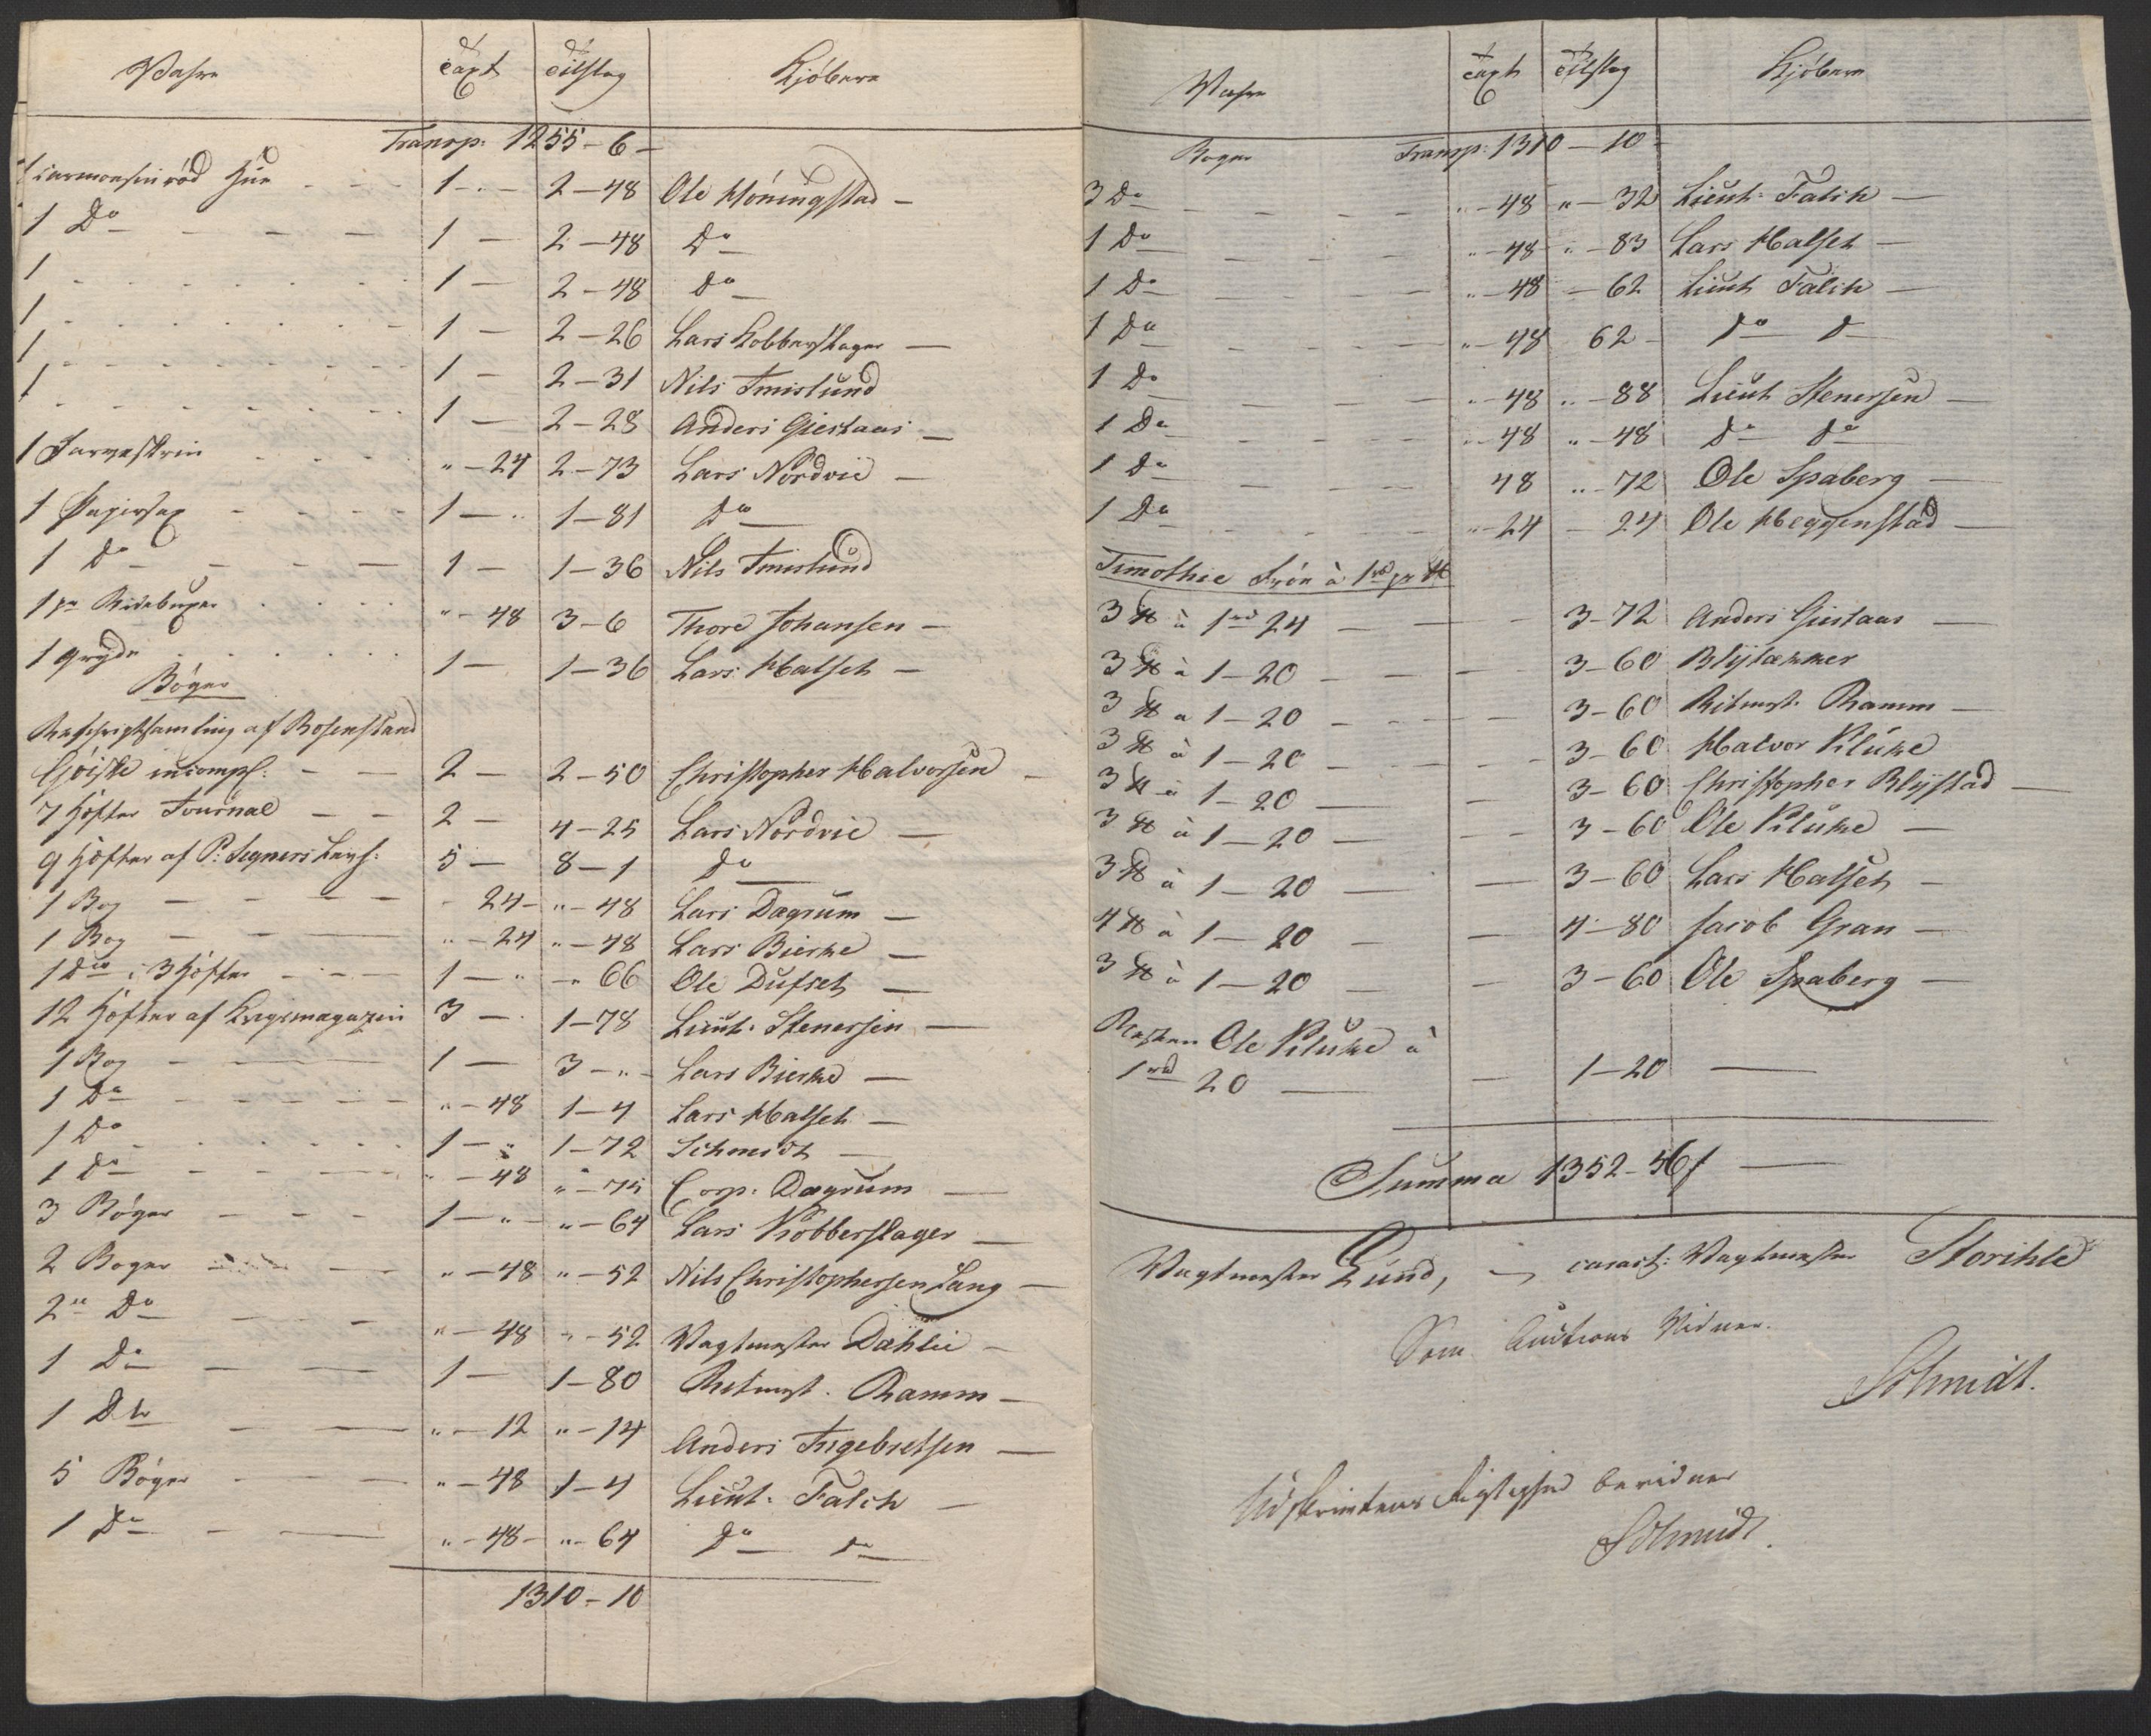 Vahre Taxt Tilslag Kjöbere
Transp: 1255-6-
1 Carmonsinröd Hue - - - 1-.- 2-48 Ole Höningstad -
1 Do - - - - 1 - 2-48 Do
1 - - - - - - 1 - 2-48 do
1 - - - - - - 1 - 2-26 Lars Kobberslager -
1 - - - - - - 1 - 2-31 Nils Tmislund
1 - - - - - - 1 - 2-28 Anders Giestaas -
1 Farveskrin - - - "-24 2-73 Lars Nordvie -
1 Papirsax - - - - 1-" 1-81 Do
1 do - - - - 1 - 1-36 Nils Tmislund
1 pr Ridebuxer - - - "-48 3-6 Thore Johansen -
1 gryde - - - - - 1 - 1-36 Lars Halseth -
Böger
Reskriptsamling af Rosenstand
Göiske incompl: - - 2 - 2-50 Christopher Halvorsen -
7 Höfter Journal - - 2 - 4-25 Lars Nordvie -
9 Höfter af P: Segners 5 - 8-1 do
1 Bog - - - - 24- "-48 Lars Dagrum -
1 Bog - - - "-24 "-48 Lars Bierke -
1 Do i 3 Höfter - - - 1-" -"66 Ole Dufseth -
12 Höfter af Krigsmagazin 3 -. 1-78 Lieut: Stenersen -
1 Bog - - 1 - 3-"- Lars Bierke -
1 Do - - - - - "-48 1-4 Lars Halseh -
1 Do - - - - - 1-" 1-72 Schmidt -
1 do - - - - "-48 "-75 Corp: Dagrum -
3 Böger - - - 1-"- "-64 Lars Kobberslager -
2 Boger - - "-48 "-52 Nils Christophersen Lang -
2 Do - - - "-48 "-52 Vagtmester Dæhlie -
1 Do - - 1 - 1-80 Ritmst. Ramm -
1 Do - - "-12 "-14 Anders Ingebretsen -
5 Böger - - - "-48 1-4 Lieut: Falch -
1 Do - - "-48- "-64 do do
1310-10
Vahre Taxt Tilslag Kjöbere
Boger Transp: 1310-10-
3 Do - - - - "-48 "-32 Lieut: Falch -
1 Do - - - - "-48 "-83 Lars Halseh -
1 Do - - - - "-48 -62 Lieut Falch -
1 Do - - - - "-48 62- do d
1 Do - - - - "-48 "-88 Lieut Stenersen -
1 Do - - - - "-48 "-48 do do
1 do - - - - 48 "-72 Ole Spaberg -
1 Do - - - - "-24 -24 Ole Heggenstad -
Timothie Fröe à 1rd pr ℔
3 ℔ à 1rd 24 - - - 3-72 Anders Giestaas -
3 ℔ à 1-20 - - - 3-60 Blytækker
3 ℔ a 1-20 - - - 3-60 Ritmst. Ramm -
3 ℔ à 1-20 - - - 3-60 Halvor Kluke
3 ℔ à 1-20 - - 3-60 Christopher Blystad -
3 ℔ à 1-20 - - - 3-60 Ole Kluke -
3 ℔ à 1-20 - - 3-60 Lars Halseh -
4 ℔ à 1-20 - - 4-80 Jacob Gran -
3 ℔ à 1-20 - - 3-60 Ole Spaberg -
Resten Ole Kluke à
1rd 20 - - 1-20 -
Summa 1352-56 ſ -
Vagtmester Lund, - caract: Vagtmester Storihle
Som Auctions Vidner.
Schmidt.
Udskriftens Rigtighed bevidner
Schmidt.